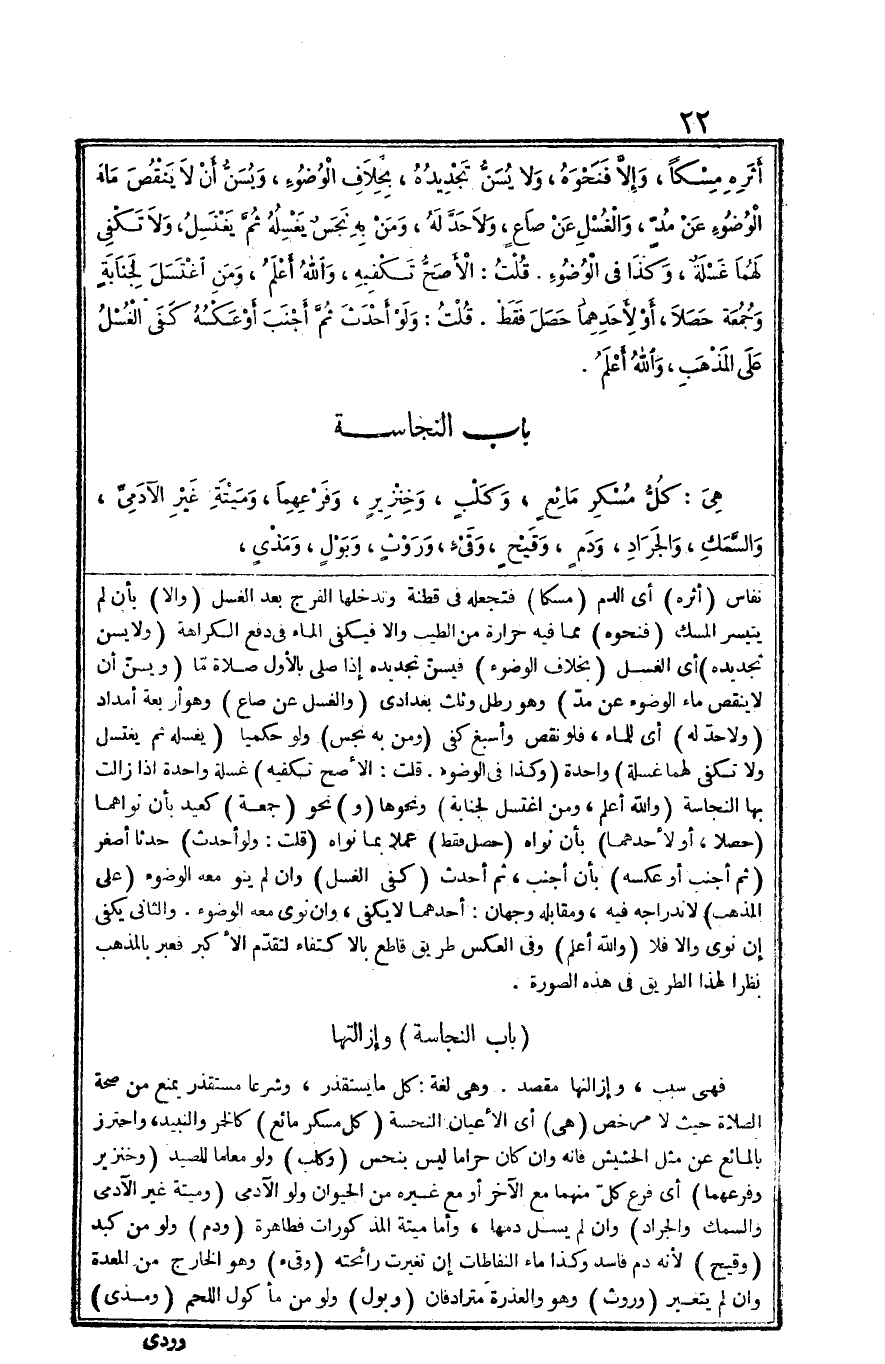 ٢٢
أَثَرِهِ مِسْكاً ، وَإِلاَّ فَنَحْوَهُ ، وَلا يُسَنُّ تَجْدِيدُهُ ، بِخِلاَفِ الْوُضُوءِ ، وَيُسَنُّ أَنْ لاَ يَنْقُصَ مَاءُ
الْوُضُوءِ عَنْ مُدٍّ ، وَالْغُسْلِ عَنْ صَاعٍ ، وَلاَ حَدَّ لَهُ ، وَمَنْ بِهِ نَجَسٌ يَغْسِلُهُ ثُمَّ يَغْتَسِلُ، وَلاَ تَكْفِى
لَهُمَا غَسْلَةٌ ، وَكَذَا فى الْوُضُوءِ . قُلْتُ : الْأَصَحُّ تَكْفِيهِ ، وَاللهُ أَعْلَمُ ، وَمَنِ اغْتَسَلَ لِجَنَابَةٍ
وَجُمُعَة حَصَلاَ ، أَوْ لِأَحَدِهِمَا حَصَلَ فَقَطْ . قُلْتُ : وَلَوْ أَحْدَثَ ثُمَّ أَجْنَبَ أَوْ عَكْسُهُ كَفَى الْغُسْلُ
عَلَى المَذْهَبِ ، وَاللهُ أَعْلَمُ .
باب النجاسة
هِىَ : كُلُّ مُسْكِرٍ مَائِعٍ ، وَكَلْبٍ ، وَخِنْزِيرٍ ، وَفَرْعِهِمَا ، وَمَيْتَةِ غَيْرِ الآدَمِىِّ ،
وَالسَّمَكِ ، وَالجَرَادِ ، وَدَمٍ ، وَقَيْحٍ ، وَقَىْءٍ ، وَرَوْثٍ ، وَبَوْلٍ ، وَمَذْىٍ ،
نفاس (أثره) أى الدم (مسكا) فتجعله فى قطنة وتدخلها الفرج بعد الغسل (والا) بأن لم
يتيسر المسك (فنحوه) مما فيه حرارة من الطيب والا فيكفى الماء فى دفع الكراهة (ولا يسن
تجديده) أى الغسل (بخلاف الوضوء) فيسنّ تجديده إذا صلى بالأول صلاة مّا (ويسنّ أن
لا ينقص ماء الوضوء عن مدّ) وهو رطل وثلث بغدادى (والغسل عن صاع) وهو أربعة أمداد
(ولا حدّ له) أى للماء ، فلو نقص وأسبغ كفى (ومن به نجس) ولو حكميا (يغسله ثم يغتسل
ولا تكفى لهما غسلة) واحدة (وكذا فى الوضوء . قلت : الأصح تكفيه) غسلة واحدة اذا زالت
بها النجاسة (والله أعلم ، ومن اغتسل لجنابة) ونحوها (و) نحو (جمعة) كعيد بأن نواهما
(حصلا ، أو لأحدهما) بأن نواه (حصل فقط) عملا بما نواه (قلت : ولو أحدث) حدثا أصغر
(ثم أجنب أو عكسه) بأن أجنب ، ثم أحدث (كفى الغسل) وان لم ينو معه الوضوء (على
المذهب) لاندراجه فيه ، ومقابله وجهان : أحدهما لا يكفى ، وان نوى معه الوضوء . والثانى يكفى
إن نوى والا فلا (والله أعلم) وفى العكس طريق قاطع بالاكتفاء لتقدّم الأكبر فعبر بالمذهب
نظرا لهذا الطريق فى هذه الصورة .
(باب النجاسة) وإزالتها
فهى سبب ، وإزالتها مقصد . وهى لغة : كل ما يستقذر ، وشرعا مستقذر يمنع من صحة
الصلاة حيث لا مرخص (هى) أى الأعيان النجسة (كل مسكر مائع) كالخمر والنبيذ، واحترز
بالمائع عن مثل الحشيش فانه وان كان حراما ليس بنجس (وكلب) ولو معلما للصيد (وخنزير
وفرعهما) أى فرع كلّ منهما مع الآخر أو مع غيره من الحيوان ولو الآدمى (وميتة غير الآدمى
والسمك والجراد) وان لم يسل دمها ، وأما ميتة المذكورات فطاهرة (ودم) ولو من كبد
(وقيح) لأنه دم فاسد وكذا ماء النفاطات إن تغيرت رائحته (وقىء) وهو الخارج من المعدة
وان لم يتغير (وروث) وهو والعذرة مترادفان (وبول) ولو من مأكول اللحم (ومذى)
وودى